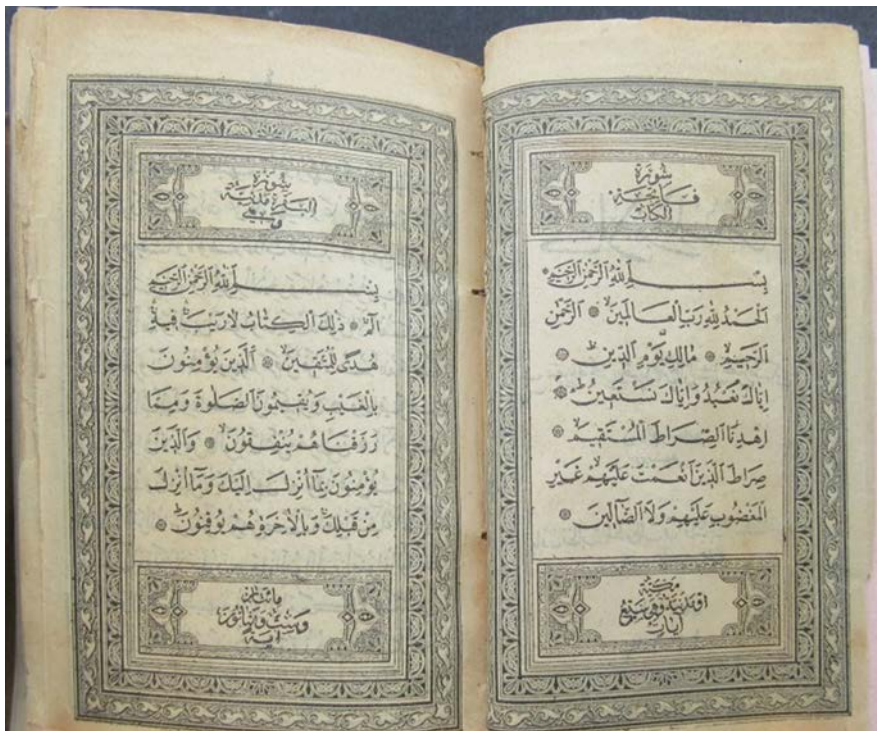 سُورَةُ
فَاتِحَةِ
الكِتَابِ
بِسْمِ اللهِ الرَّحْمٰنِ الرَّحِيمِ ۞
اَلْحَمْدُ لِلّٰهِ رَبِّ الْعَالَمِينَۙ ۞ اَلرَّحْمٰنِ
الرَّحِيمِۙ ۞ مَالِكِ يَوْمِ الدِّينِۜ ۞
اِيَّاكَ نَعْبُدُ وَاِيَّاكَ نَسْتَعِينُۜ ۞
اِهْدِنَا الصِّرَاطَ الْمُسْتَقِيمَۙ ۞
صِرَاطَ الَّذِينَ اَنْعَمْتَ عَلَيْهِمْۙ غَيْرِ
الْمَغْضُوبِ عَلَيْهِمْ وَلَا الضَّالِّينَ ۞
مكية
او مدنية وهي سبع
آيات
سُورَةُ
البقرة مدنية
وهي
بِسْمِ اللهِ الرَّحْمٰنِ الرَّحِيمِ
الٓمٓۜ ۞ ذٰلِكَ الْكِتَابُ لَا رَيْبَۚ فِيهِۚ
هُدًى لِلْمُتَّقِينَۙ ۞ اَلَّذِينَ يُؤْمِنُونَ
بِالْغَيْبِ وَيُقِيمُونَ الصَّلٰوةَ وَمِمَّا
رَزَقْنَاهُمْ يُنْفِقُونَۙ ۞ وَالَّذِينَ
يُؤْمِنُونَ بِمَٓا اُنْزِلَ اِلَيْكَ وَمَٓا اُنْزِلَ
مِنْ قَبْلِكَۚ وَبِالْاٰخِرَةِ هُمْ يُوقِنُونَۜ ۞
مائتان
وست وثمانون
آية